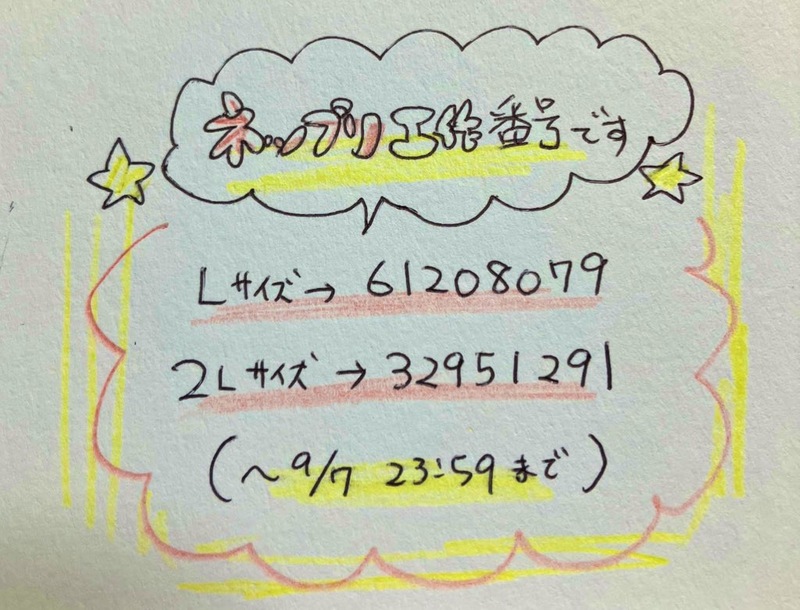 ネップリ番号です
Lサイズ→ 61208079
2Lサイズ→ 32951291
(〜9/7 23:59まで)